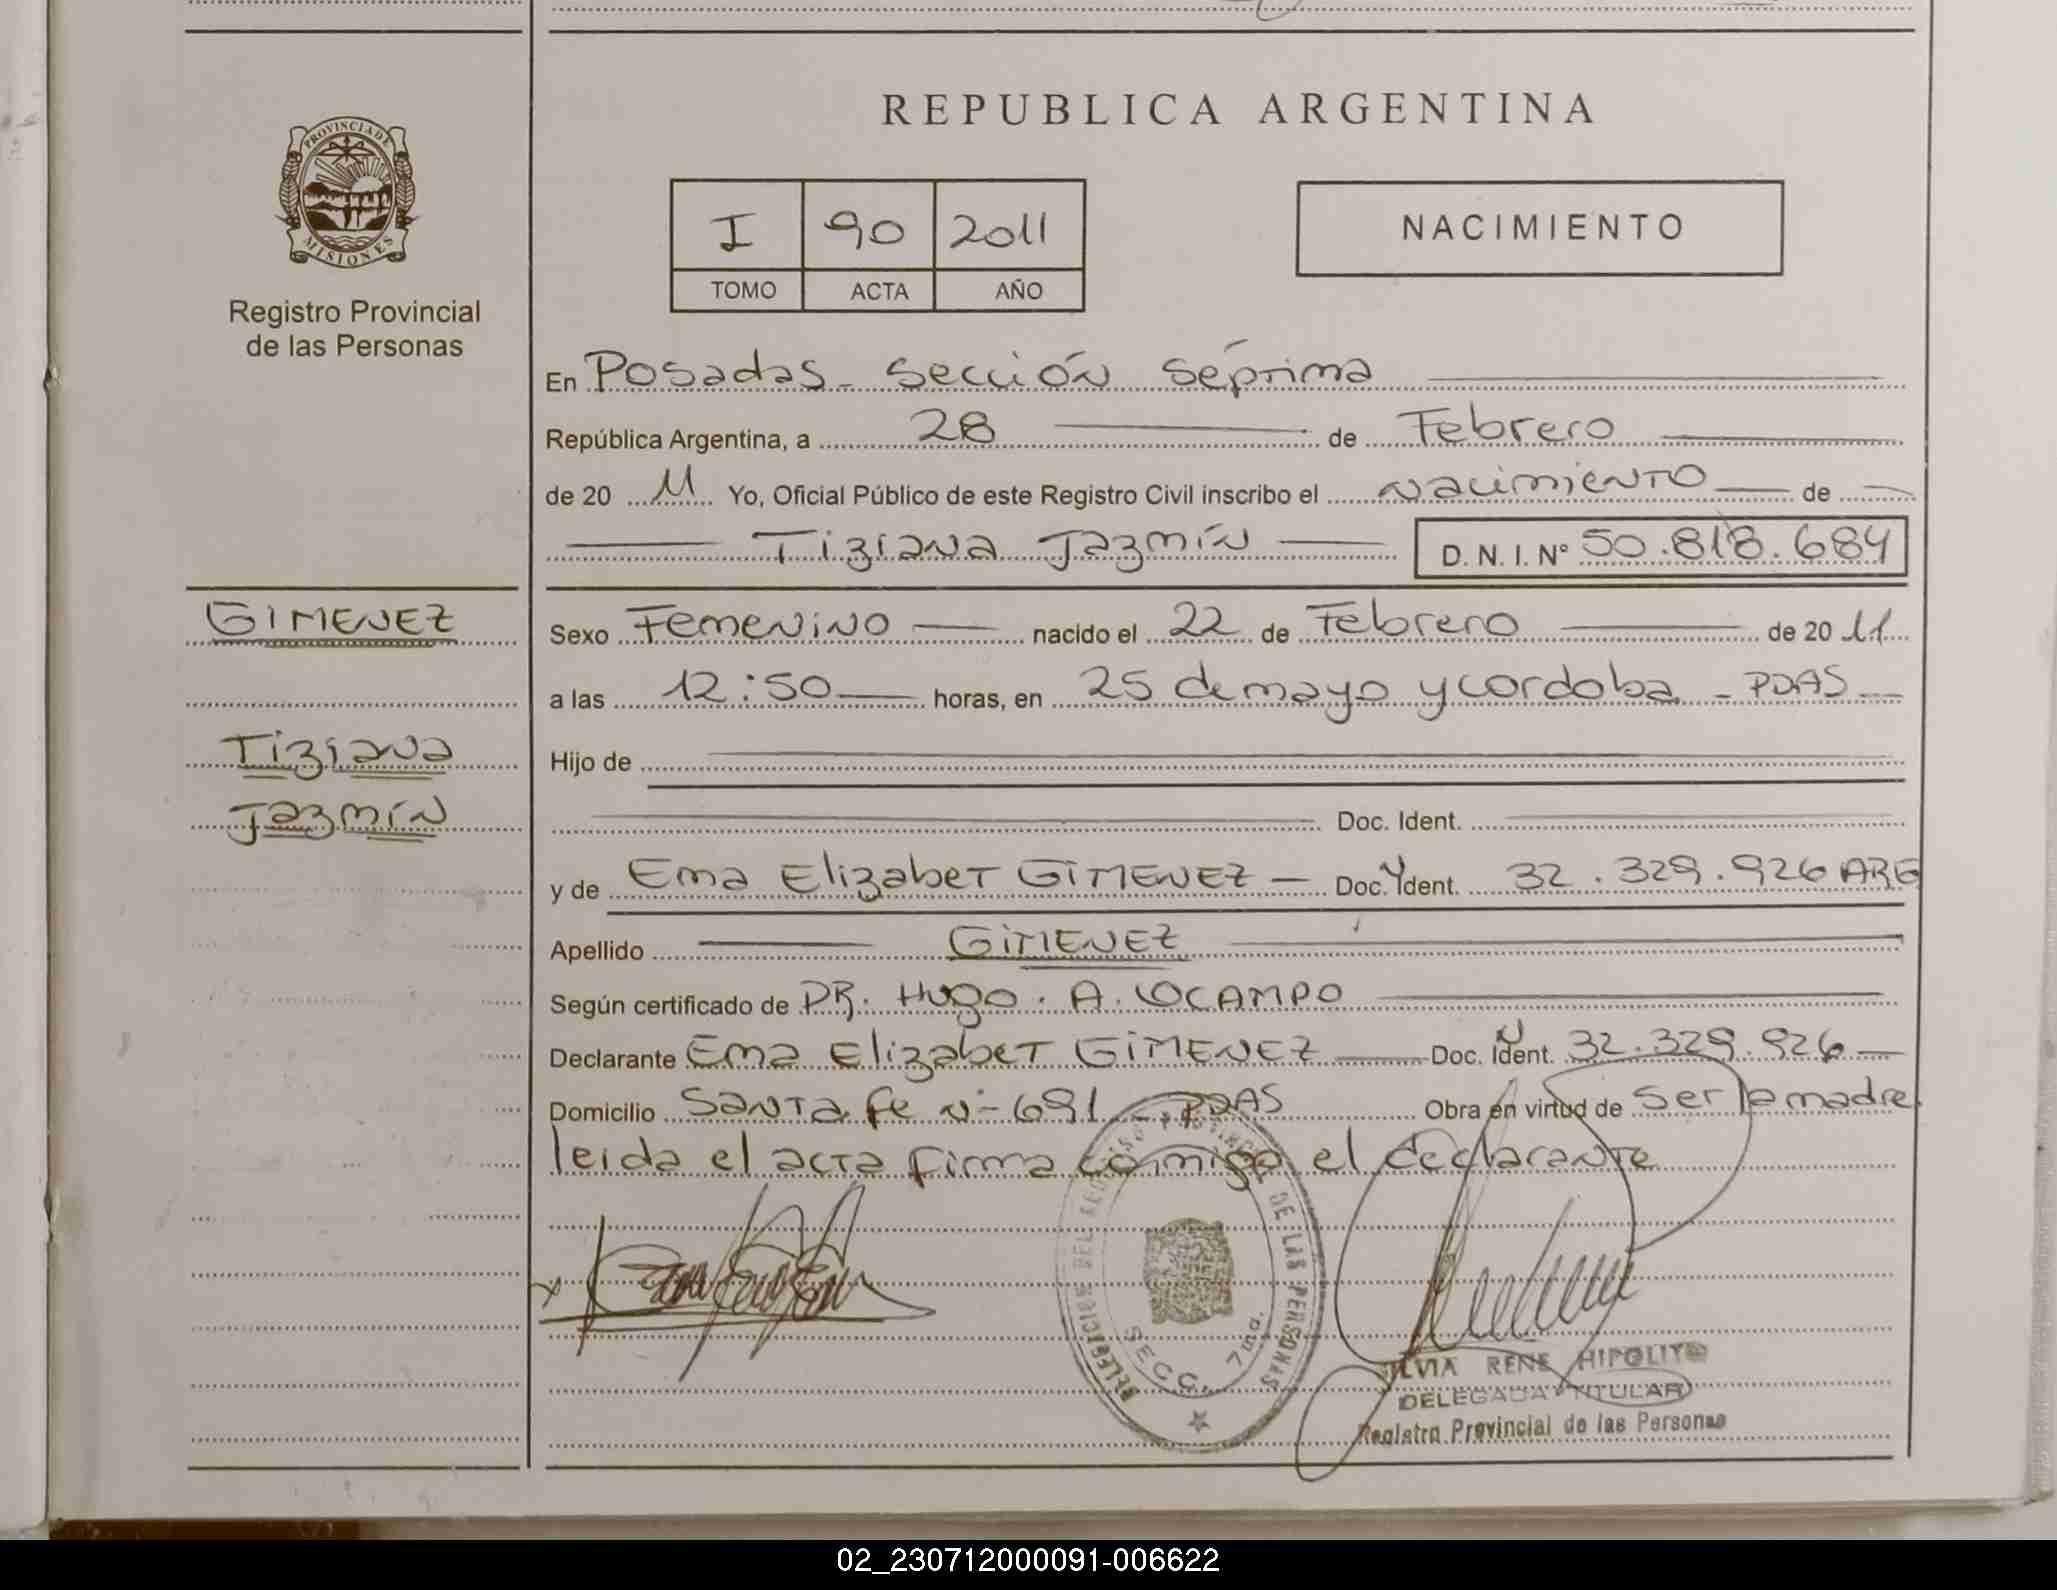 REPUBLICA ARGENTINA
PROVINCIA DE
MISIONES
Registro Provincial
de las Personas
I 90 2011
TOMO ACTA AÑO
NACIMIENTO
En Posadas - Sección Séptima
República Argentina, a 28 de Febrero
de 20 11 Yo, Oficial Público de este Registro Civil inscribo el Nacimiento de
Tiziana Jazmín D. N. I. Nº 50.818.684
GIMENEZ
Tiziana
Jazmín
Sexo Femenino nacido el 22 de Febrero de 20 11
a las 12:50 horas, en 25 de mayo y cordoba - PDAS
Hijo de
Doc. Ident.
y de Ema Elizabet GIMENEZ - Doc. Ident. 32.329.926 ARG
Apellido GIMENEZ
Según certificado de DR. Hugo. A. OCAMPO
Declarante Ema Elizabet GIMENEZ Doc. Ident. 32.329.926
Domicilio Santa fe N- 691 - PDAS Obra en virtud de Ser la madre
leida el acta firma conmigo el declarante
DELEGACION DEL REGISTRO PROVINCIAL DE LAS PERSONAS
SECC. 7ma.
SILVIA RENE HIPOLITO
DELEGADA TITULAR
Registro Provincial de las Personas
02_230712000091-006622